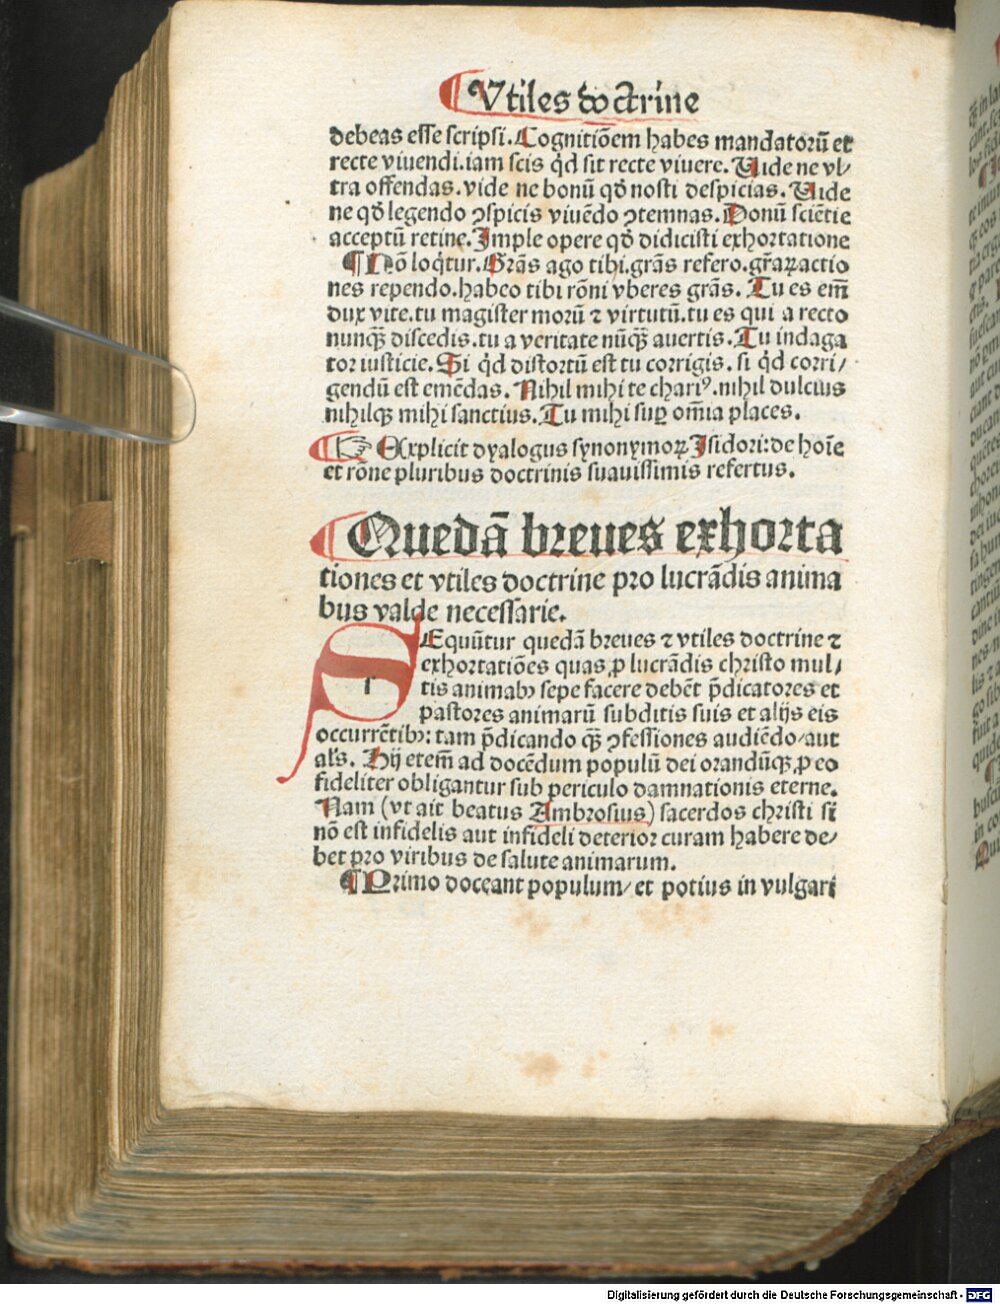 Vtiles doctrine
debeas esse scripsi. Cognitiõem habes mandatorũ et
recte viuendi. iam scis qď sit recte viuere. Uide ne vl⸗
tra offendas. vide ne bonũ qď nosti despicias. Uide
ne qď legendo ꝯspicis viuẽdo ꝯtemnas. Donũ sciẽtie
acceptũ retine. Imple opere qď didicisti exhortatione
¶ Nõ loq̃tur. Grãs ago tibi. grãs refero. gr̃aꝝ actio
nes rependo. habeo tibi rõni vberes grãs. Tu es em̃
dux vite. tu magister morũ ⁊ virtutũ. tu es qui a recto
nunqꝫ̃ discedis. tu a veritate nũqꝫ̃ auertis. Tu indaga
tor iusticie. Si qď distortũ est tu corrigis. si qď corri⸗
gendũ est emẽdas. Nihil mihi te chariꝰ. nihil dulcius
nihilqꝫ mihi sanctius. Tu mihi suꝑ om̃ia places.
☞ Explicit dyalogus synonymoꝝ Isidori: de hoĩe
et rõne pluribus doctrinis suauissimis refertus.
Quedã breues exhorta
tiones et vtiles doctrine pro lucrãdis anima
bus valde necessarie.
SEquũtur quedã breues ⁊ vtiles doctrine ⁊
exhortatiões quas ꝓ lucrãdis christo mul⸗
tis animabꝰ sepe facere debẽt p̃dicatores et
pastores animarũ subditis suis et alijs eis
occurrẽtibꝰ: tam p̃dicando qꝫ̃ ꝯfessiones audiẽdo/ aut
als̃. Hij etem̃ ad docẽdum populũ dei orandũqꝫ ꝓ eo
fideliter obligantur sub periculo damnationis eterne.
Nam (vt ait beatus Ambrosius) sacerdos christi si
nõ est infidelis aut infideli deterior curam habere de⸗
bet pro viribus de salute animarum.
¶ Primo doceant populum/ et potius in vulgari
Digitalisierung gefördert durch die Deutsche Forschungsgemeinschaft - DFG